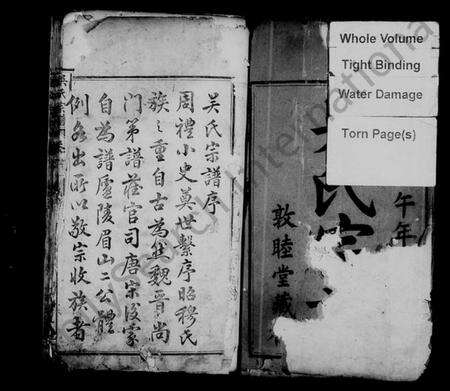 Whole Volume
Tight Binding
Water Damage
Torn Page(s)
午年
氏宗
敦睦堂
吴氏宗譜序
周禮小史奠世繫序昭穆氏
族之重自古為然魏晉尚
門第譜在官司唐宗後家
自為譜廬陵眉山二公體
例各出所以敬宗收族者